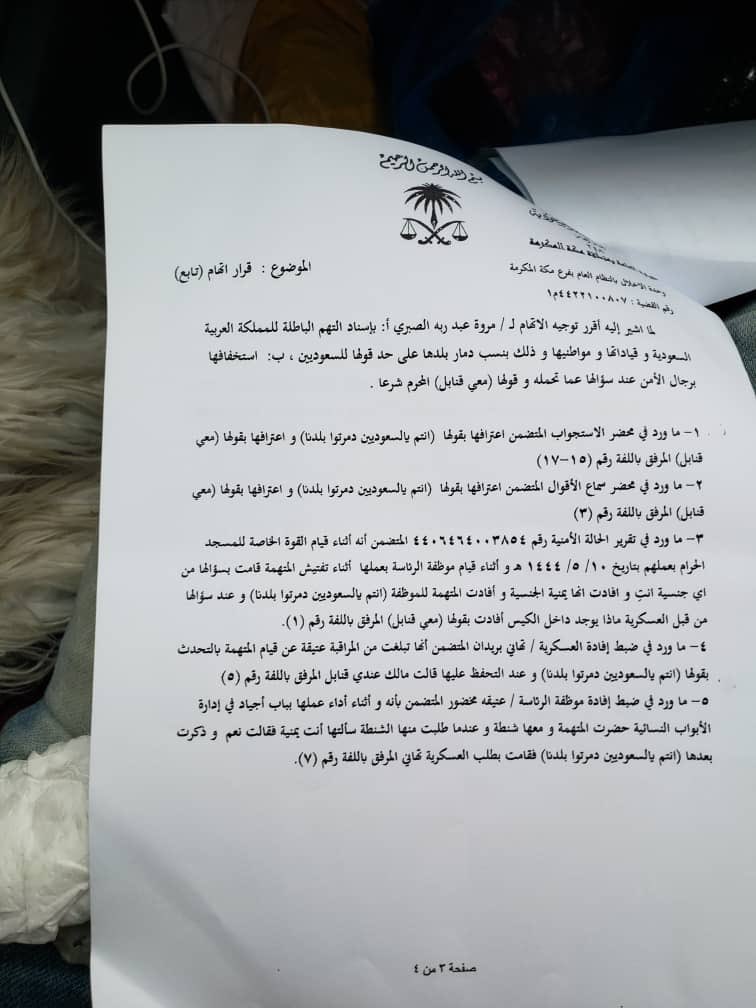 بسم الله الرحمن الرحيم
مكة المكرمة
وحدة الاخلال بالنظام العام بفرع مكة المكرمة
رقم القضية : ٤٤٢٢١٠٠٨٠٧م١
الموضوع : قرار اتهام (تابع)
لما اشير إليه أقرر توجيه الاتهام لـ / مروة عبد ربه الصبري أ: بإسناد التهم الباطلة للمملكة العربية
السعودية و قياداتها و مواطنيها و ذلك بنسب دمار بلدها على حد قولها للسعوديين ، ب: استخفافها
برجال الأمن عند سؤالها عما تحمله و قولها (معي قنابل) المحرم شرعا .
١- ما ورد في محضر الاستجواب المتضمن اعترافها بقولها (انتم يالسعوديين دمرتوا بلدنا) و اعترافها بقولها (معي
قنابل) المرفق باللفة رقم (١٥-١٧)
٢- ما ورد في محضر سماع الأقوال المتضمن اعترافها بقولها (انتم يالسعوديين دمرتوا بلدنا) و اعترافها بقولها (معي
قنابل) المرفق باللفة رقم (٣)
٣- ما ورد في تقرير الحالة الأمنية رقم ٤٤٠٦٤٦٤٠٠٣٨٥٤ المتضمن أنه أثناء قيام القوة الخاصة للمسجد
الحرام بعملهم بتاريخ ١٠/ ٥/ ١٤٤٤ هـ و أثناء قيام موظفة الرئاسة بعملها أثناء تفتيش المتهمة قامت بسؤالها من
اي جنسية انتِ و افادت انها يمنية الجنسية و أفادت المتهمة للموظفة (انتم يالسعوديين دمرتوا بلدنا) و عند سؤالها
من قبل العسكرية ماذا يوجد داخل الكيس أفادت بقولها (معي قنابل) المرفق باللفة رقم (١).
٤- ما ورد في ضبط إفادة العسكرية / تهاني بريدان المتضمن أنها تبلغت من المراقبة عتيقة عن قيام المتهمة بالتحدث
بقولها (انتم يالسعوديين دمرتوا بلدنا) و عند التحفظ عليها قالت مالك عندي قنابل المرفق باللفة رقم (٥)
٥- ما ورد في ضبط إفادة موظفة الرئاسة / عتيقه مخضور المتضمن بأنه و أثناء أداء عملها بباب أجياد في إدارة
الأبواب النسائية حضرت المتهمة و معها شنطة و عندما طلبت منها الشنطة سألتها أنت يمنية فقالت نعم و ذكرت
بعدها (انتم يالسعوديين دمرتوا بلدنا) فقامت بطلب العسكرية تهاني المرفق باللفة رقم (٧).
صفحة ٣ من ٤